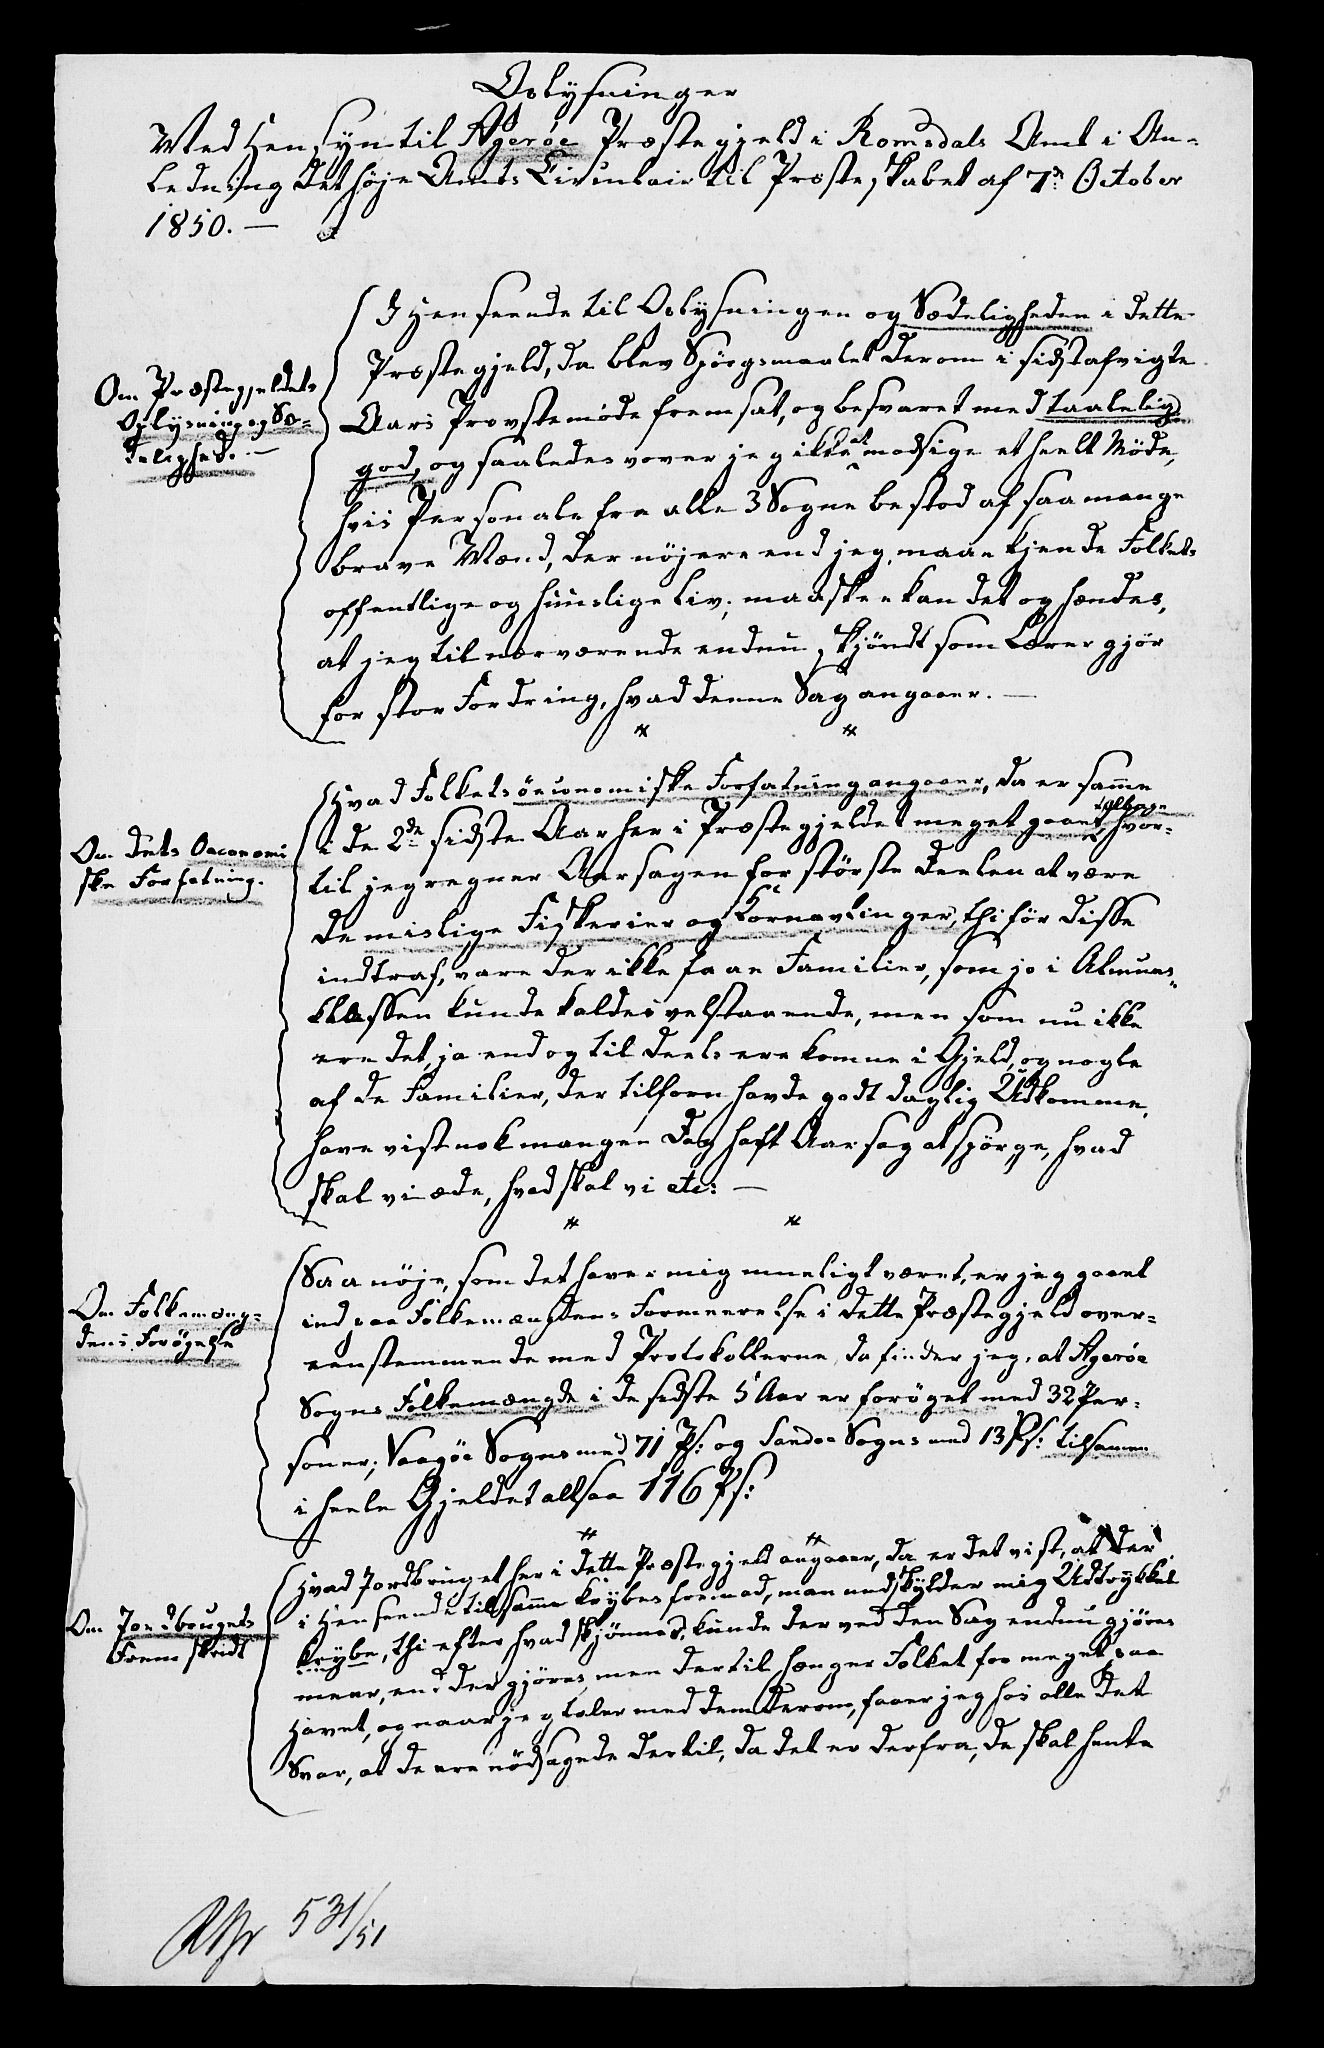 Oplysninger
Med Hensyn til Agerøe Præstegjeld i Romsdals Amt i An-
ledning det høje Amts Circulair til Præsteskabet af 7de October
1850. —
Om Præstegjeldets
Oplysning og Sæ-
delighed. —
I Henseende til Oplysningen og Sædeligheden i dette
Præstegjeld, da blev Spørgsmaalet derom i sidstafvigte
Aars Provstemøde fremsat, og besvaret med taalelig
god, og saaledes vover jeg ikke at modsige et heelt Møde,
hvis Personale fra alle 3 Sogne bestod af saa mange
brave Mænd, der nøjere end jeg maae kjende Folkets
offentlige og huuslige Liv; maaskee kan det og hændes,
at jeg til nærværende endnu, skjøndt som Lærer gjør
for stor Fordring, hvad denne Sag angaaer. —
Om dets Oeconomi
ske Forfatning.
Hvad Folkets øeconomiske Forfatning angaaer, da er samme
i de 2de sidste Aar her i Præstegjeldet meget gaaet tilbage, hvor-
til jeg regner Aarsagen for største Deelen at være
de mislige Fiskerier og Kornavlinger, thi før disse
indtraf, vare der ikke faae Familier, som jo i Almues-
klassen kunde kaldes velstaaende, men som nu ikke
ere det, ja endog til deels ere komne i Gjeld, og nogle
af de Familier, der tilforn havde godt daglig Udkomme,
have vist nok mangen Dag haft Aarsag at spørge, hvad
skal vi æde, hvad skal vi etc: —
Om Folkemæng-
dens Forøgelse
Saa nøje, som det haver mig mueligt været, er jeg gaaet
ind paa Folkemængdens Formeerelse i dette Præstegjeld over-
eenstemmende med Protokollerne, da finder jeg, at Agerøe
Sogns Folkemængde i de sidste 5 Aar er forøget med 32 Per-
soner; Vaagøe Sogns med 71 Ps: og Sandøe Sogns med 13 Ps: tilsamen
i heele Gjeldet altsaa 116 Ps:
Om Jordbrugets
Fremskridt
Hvad Jordbruget her i dette Præstegjeld angaaer, da er det vist, at der
i Henseende til samme krybes fremad, man undskylder mig Udtrykket
krybe, thi efter hvad skjønnes, kunde der ved den Sag endnu gjøres
meer, end der gjøres, men dertil hænger Folket for meget paa
Havet, og naar jeg taler med dem derom, faaer jeg hos alle det
Svar, at de ere nødsagede dertil, da det er derfra, de skal hente
531/51